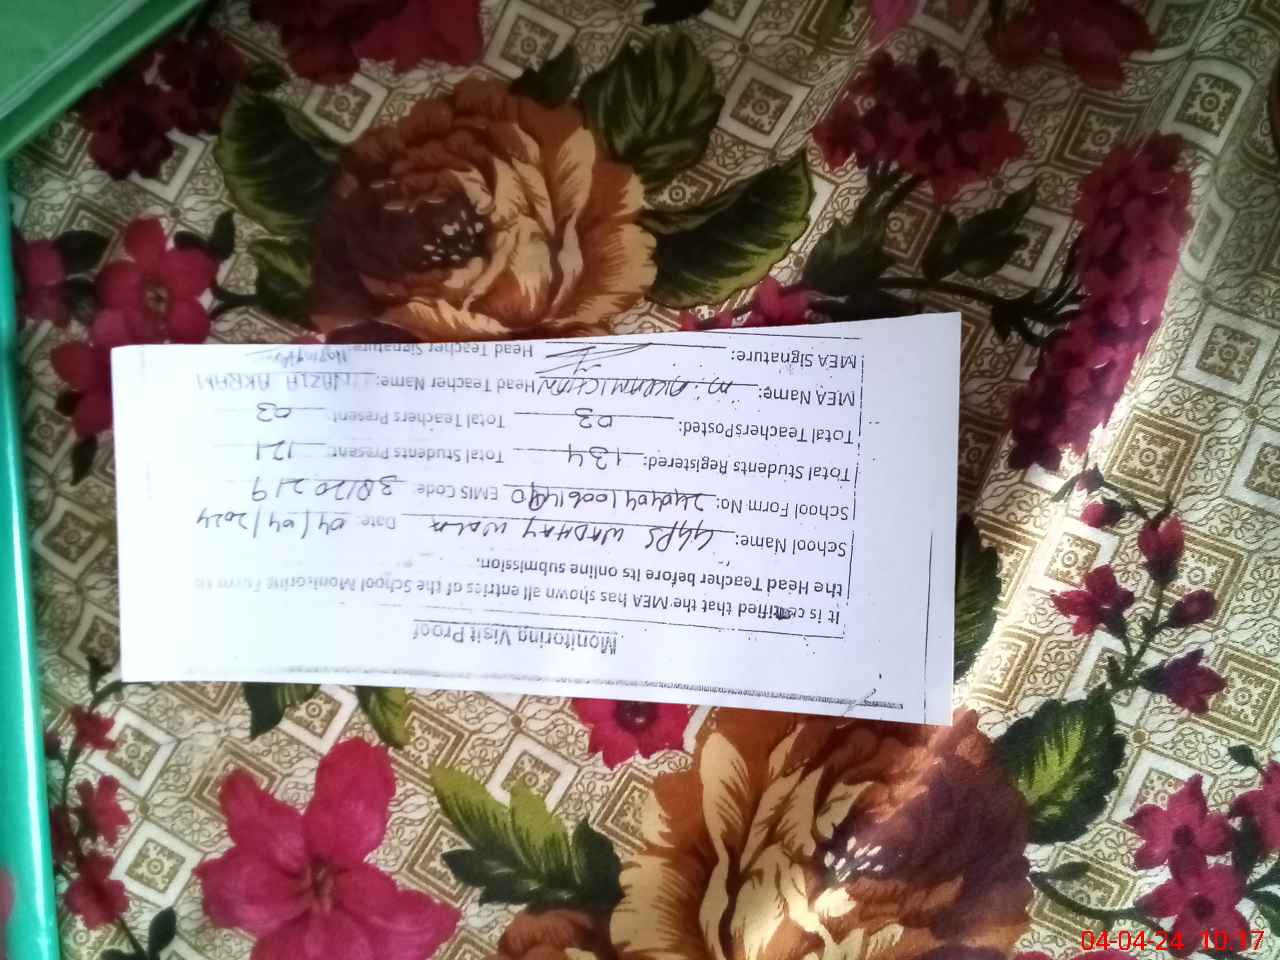 Monitoring Visit Proof
It is certified that the MEA has shown all entries of the School Monitoring Form to
the Head Teacher before its online submission.
School Name: GGPS WADHAY WALA Date: 04/04/2024
School Form No: EMIS Code 38120219
Total Students Registered: 134 Total Students Present: 121
Total Teachers Posted: 03 Total Teachers Present 03
MEA Name: Head Teacher Name: NAZIA AKRAM
MEA Signature: Head Teacher Signature:
04-04-24 10:17